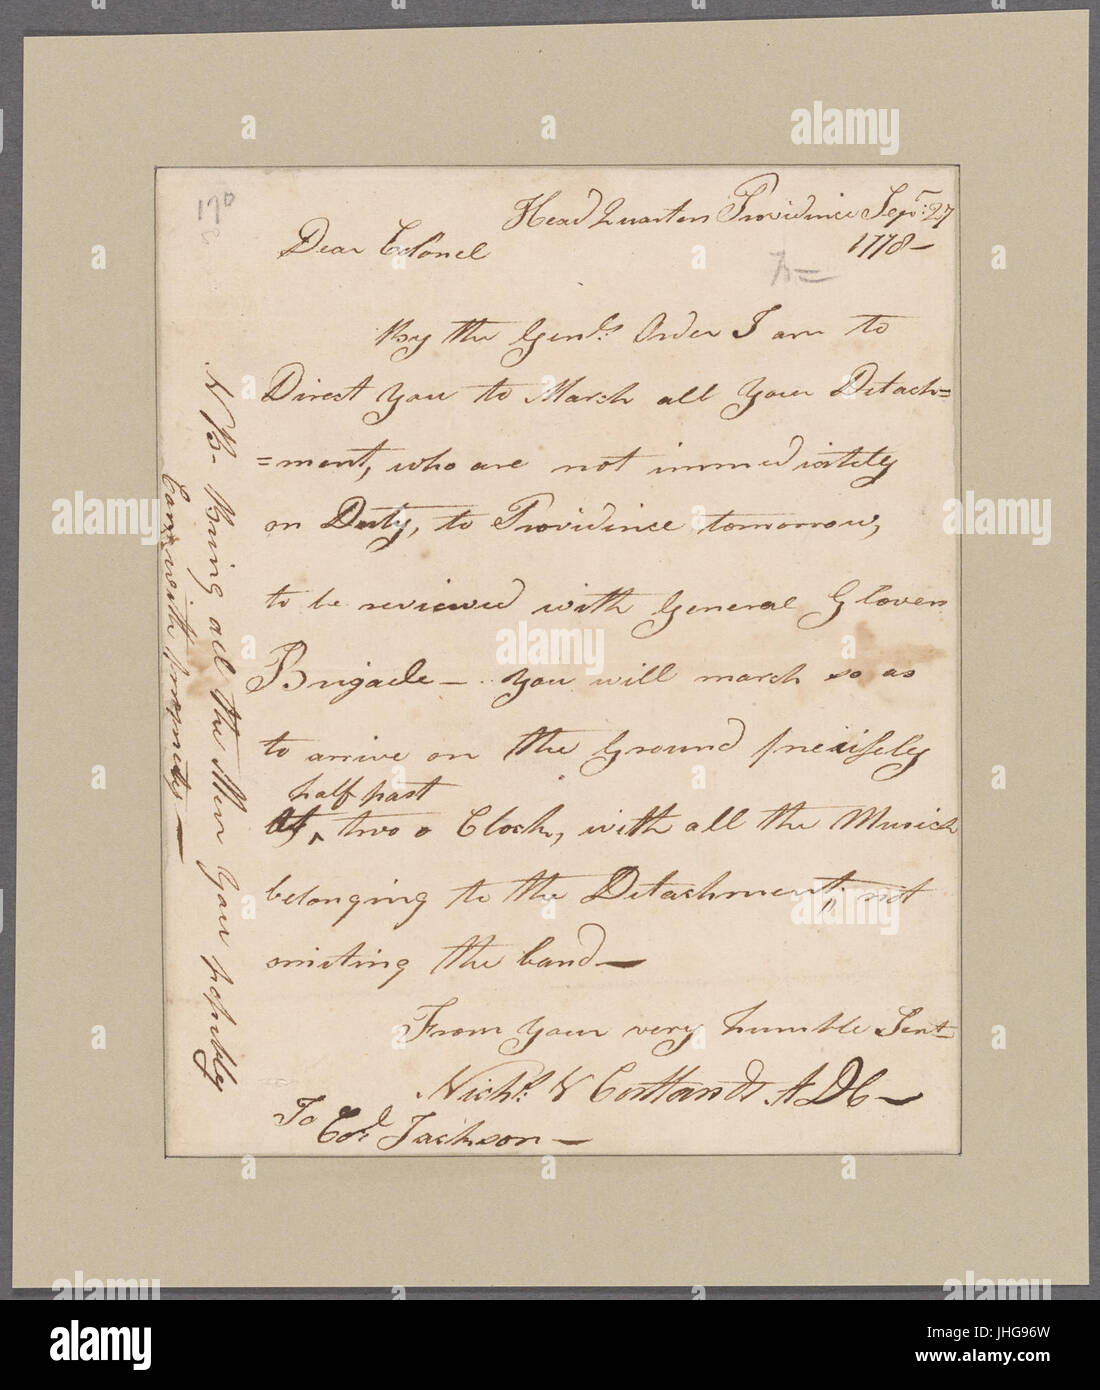 Head Quarters Providince Sepr: 27
1778 –
Dear Colonel
By the Genls Order I am to
Direct you to March all your Detach=
=ment, who are not immediately
on Duty, to Providince tomorrow,
to be reviewed with General Glovers
Brigade – you will march so as
to arrive on the Ground precisely
half past
At ^ two o Clock, with all the Musick
belonging to the Detachment, not
omitting the band –
From your very humble Sert
Nichs V Cortlandt ADC –
To
Col Jackson –
N B – Bring all the Men you posibly
Can with propriety –
170
alamy
Image ID: JHG96W
www.alamy.com